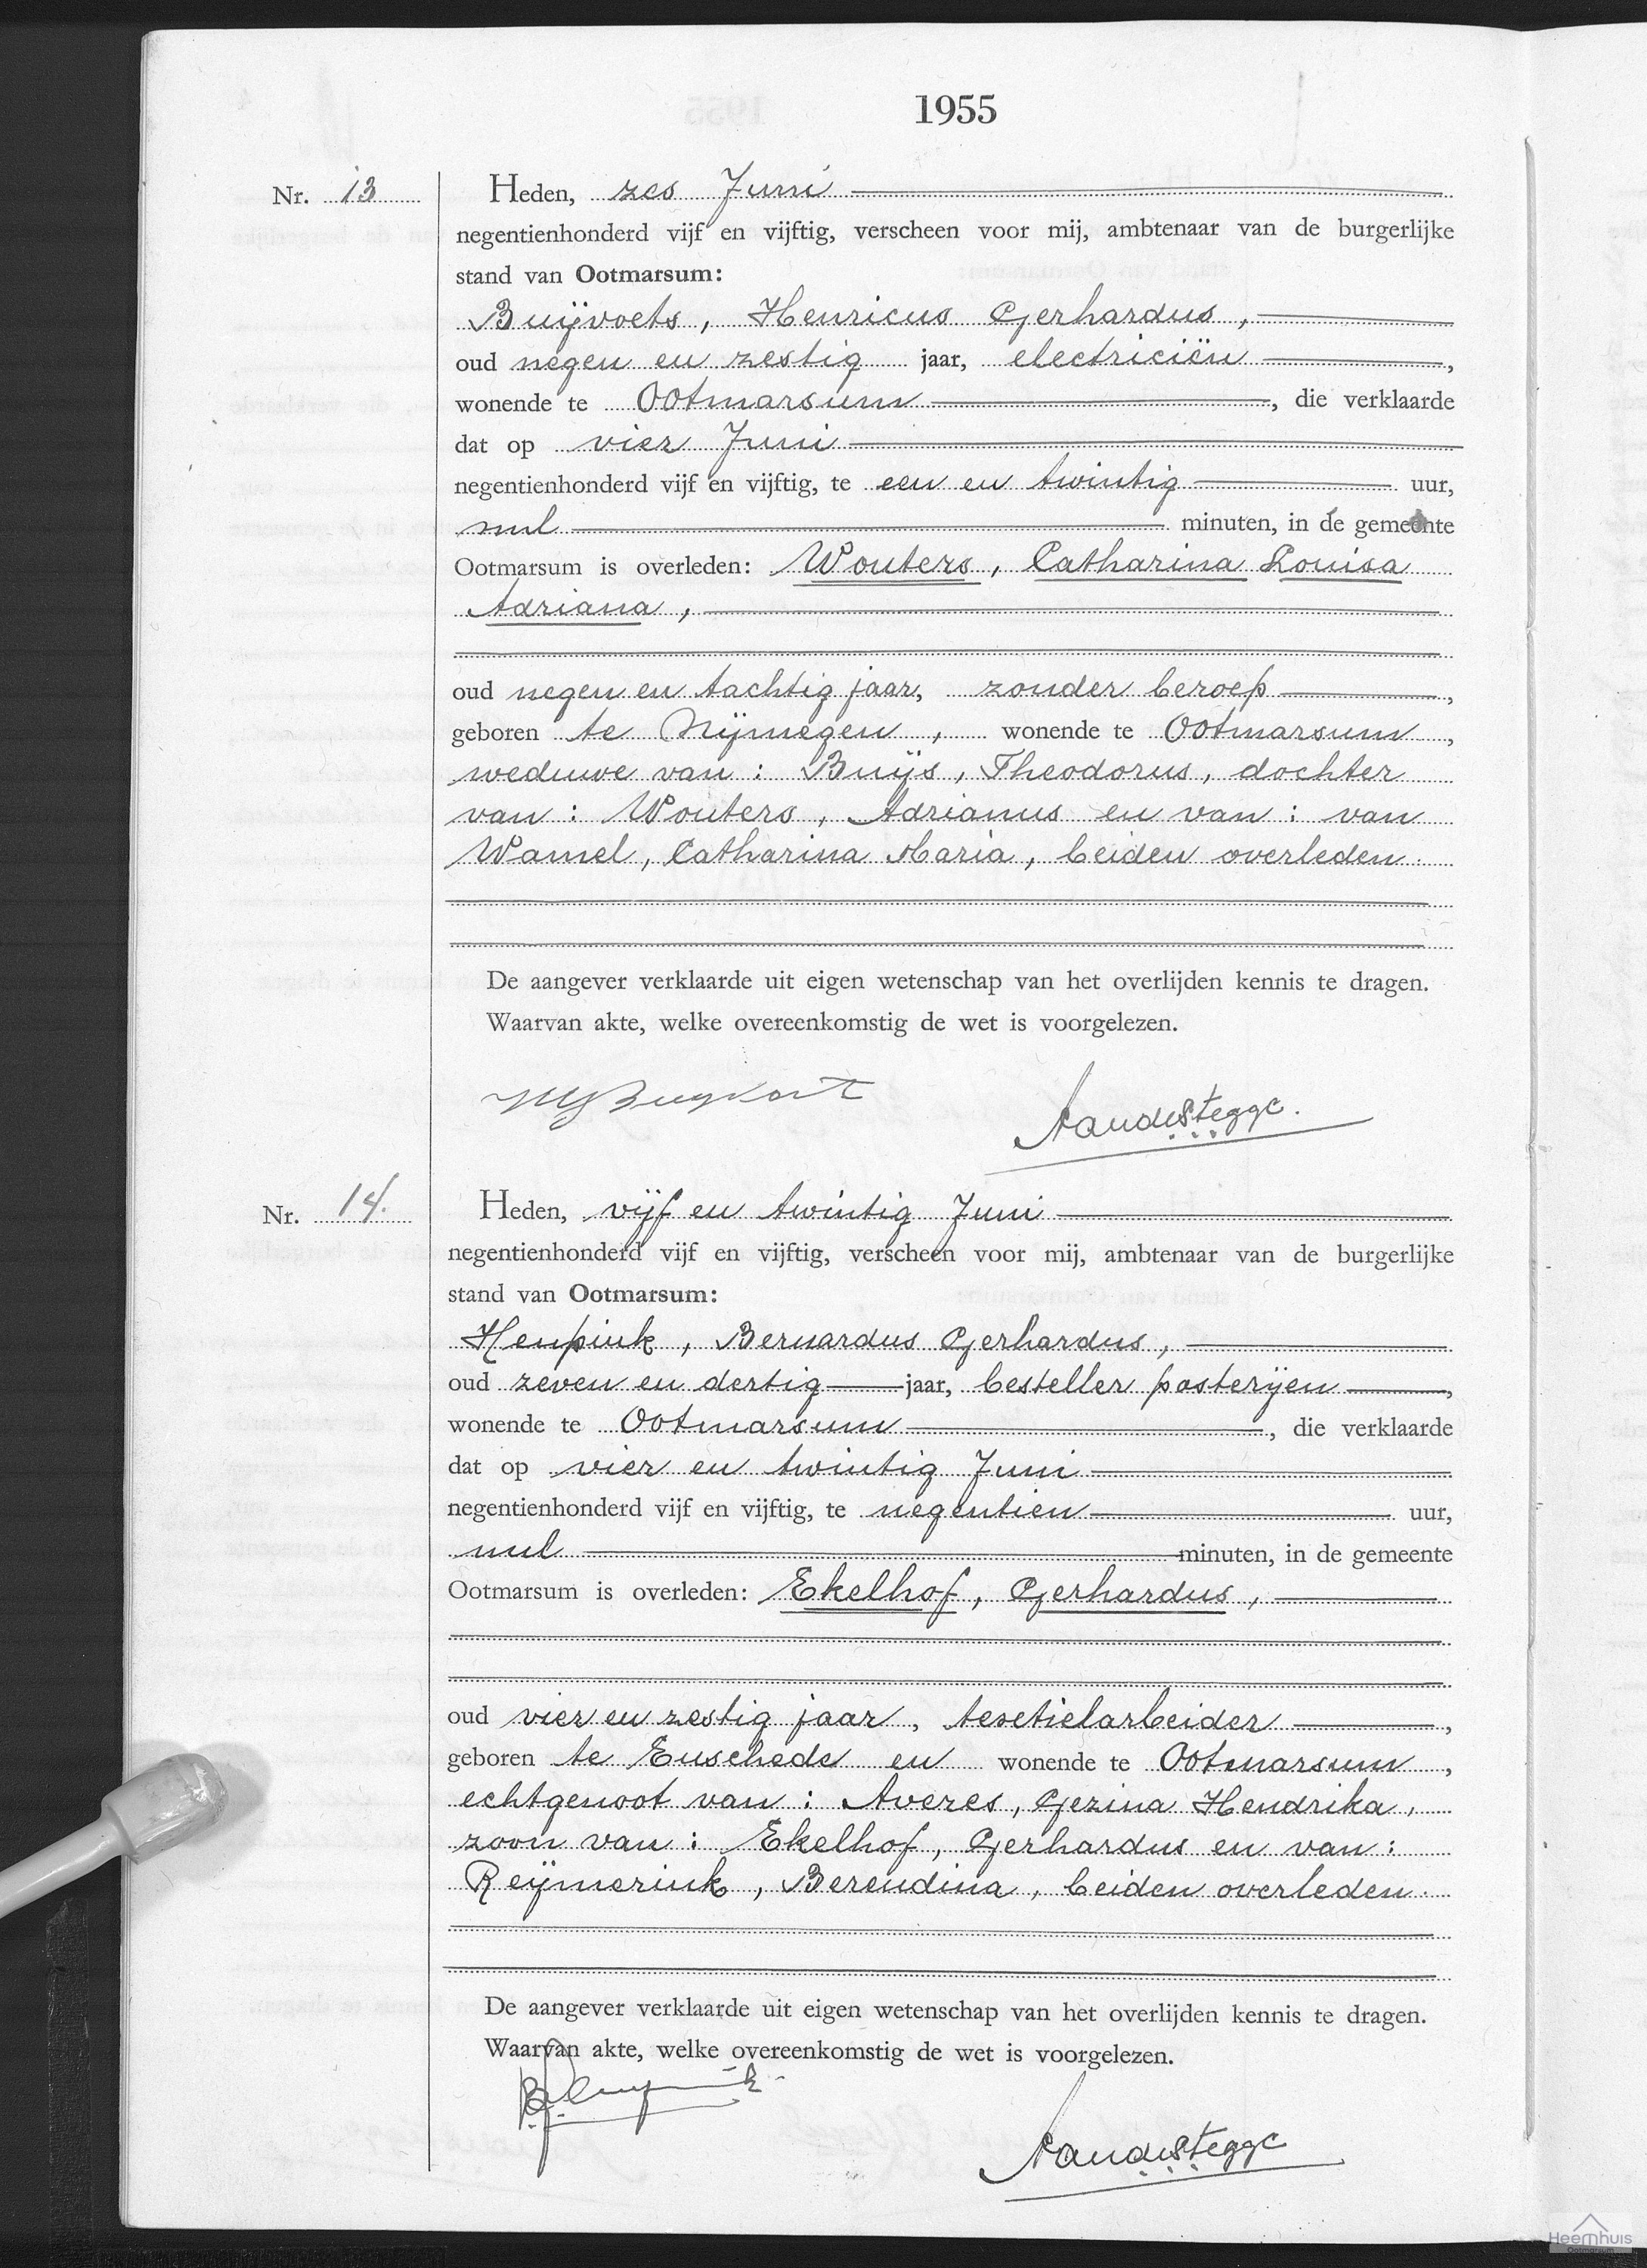 1955
Nr. 13
Heden, zes Juni
negentienhonderd vijf en vijftig, verscheen voor mij, ambtenaar van de burgerlijke
stand van Ootmarsum:
Buijvoets, Henricus Gerhardus,
oud negen en zestig jaar, electriciën,
wonende te Ootmarsum, die verklaarde
dat op vier Juni
negentienhonderd vijf en vijftig, te een en twintig uur,
nul minuten, in de gemeente
Ootmarsum is overleden: Wouters, Catharina Louisa
Adriana,
oud negen en tachtig jaar, zonder beroep,
geboren te Nijmegen, wonende te Ootmarsum,
weduwe van: Buijs, Theodorus, dochter
van: Wouters, Adrianus en van: van
Wamel, Catharina Maria, beiden overleden.
De aangever verklaarde uit eigen wetenschap van het overlijden kennis te dragen.
Waarvan akte, welke overeenkomstig de wet is voorgelezen.
Nr. 14.
Heden, vijf en twintig Juni
negentienhonderd vijf en vijftig, verscheen voor mij, ambtenaar van de burgerlijke
stand van Ootmarsum:
Henpink, Bernardus Gerhardus,
oud zeven en dertig jaar, besteller posterijen,
wonende te Ootmarsum, die verklaarde
dat op vier en twintig Juni
negentienhonderd vijf en vijftig, te negentien uur,
nul minuten, in de gemeente
Ootmarsum is overleden: Ekelhof, Gerhardus,
oud vier en zestig jaar, textielarbeider,
geboren te Enschede en wonende te Ootmarsum,
echtgenoot van: Averes, Gezina Hendrika,
zoon van: Ekelhof, Gerhardus en van:
Reijmerink, Berendina, beiden overleden.
De aangever verklaarde uit eigen wetenschap van het overlijden kennis te dragen.
Waarvan akte, welke overeenkomstig de wet is voorgelezen.
Heemhuis
Ootmarsum